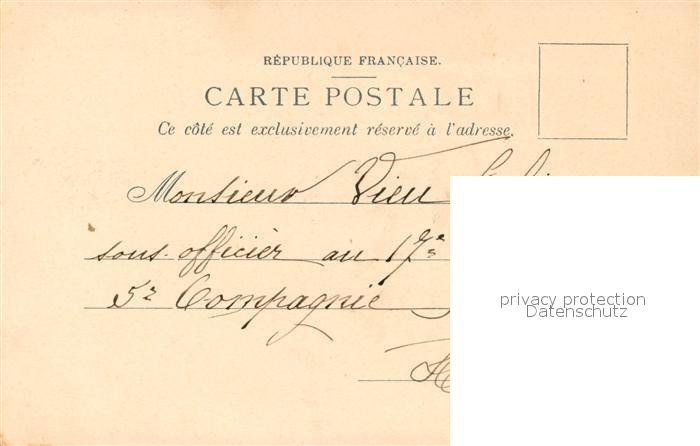 RÉPUBLIQUE FRANÇAISE.
CARTE POSTALE
Ce côté est exclusivement réservé à l'adresse.
Monsieur Vieu
sous-officier au 17e
5e Compagnie
privacy protection
Datenschutz